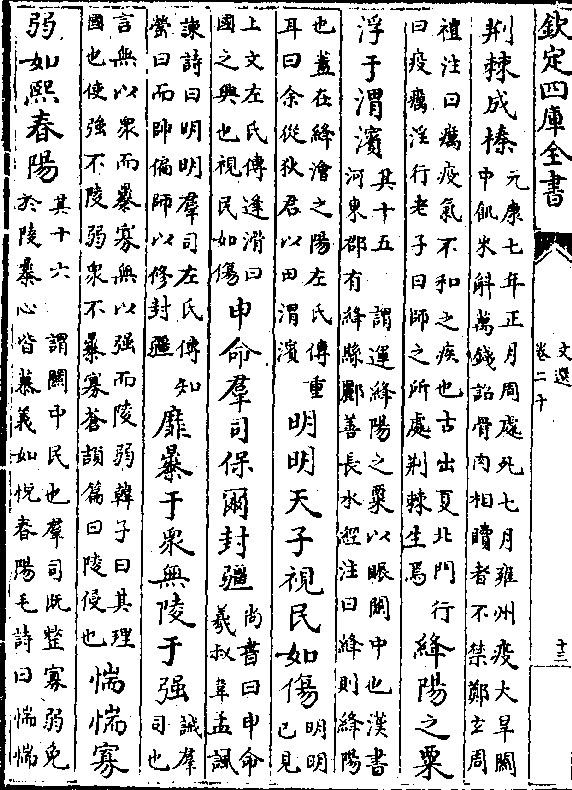 欽定四庫全書
文選
卷二十
十三
荆棘成榛
元康七年正月周處死七月雍州疫大旱關
中飢米斛萬錢詔骨肉相贖者不禁鄭玄周
禮注曰癘疫氣不和之疾也古出夏北門行
曰疫癘淫行老子曰師之所處荆棘生焉
絳陽之粟
浮于渭濱
其十五 謂運絳陽之粟以賑關中也漢書
河東郡有絳縣酈善長水經注曰絳則絳陽
也蓋在絳澮之陽左氏傳重
耳曰余從狄君以田渭濱
明明天子視民如傷
明明
已見
上文左氏傳逢滑曰
國之興也視民如傷
申命羣司保爾封疆
尚書曰申命
羲叔韋孟諷
諫詩曰明明羣司左氏傳知
罃曰而帥偏師以修封疆
靡暴于衆無陵于强
誡羣
司也
言無以衆而暴寡無以强而陵弱韓子曰其理
國也使強不陵弱衆不暴寡蒼頡篇曰陵侵也
惴惴寡
弱如熙春陽
其十六 謂關中民也羣司既整寡弱免
於陵暴心皆慕義如悦春陽毛詩曰惴惴